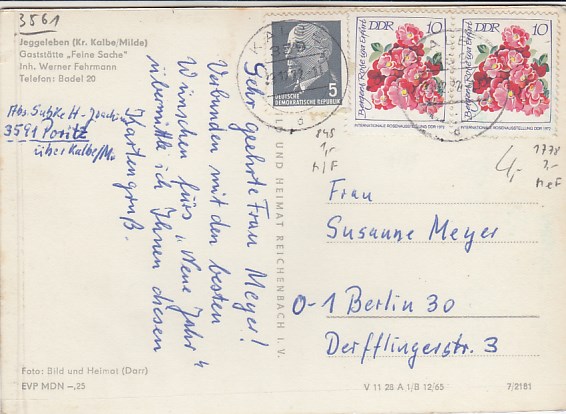 3561
Jeggeleben (Kr. Kalbe/Milde)
Gaststätte „Feine Sache"
Inh. Werner Fehrmann
Telefon: Badel 20
Abs. H.-Joachim
3591 Poritz
über Kalbe/M.
Sehr geehrte Frau Meyer!
Verbunden mit den besten
Wünschen fürs „Neue Jahr"
übermittle ich Ihnen diesen
Kartengruß.
BILD UND HEIMAT REICHENBACH I. V.
5
DEUTSCHE
DEMOKRATISCHE REPUBLIK
DDR 10
INTERNATIONALE ROSENAUSSTELLUNG DDR 1972
DDR 10
INTERNATIONALE ROSENAUSSTELLUNG DDR 1972
848
1,-
M/F
4,-
1778
2,-
MeF
Frau
Susanne Meyer
0-1 Berlin 30
Derfflingerstr. 3
Foto: Bild und Heimat (Darr)
EVP MDN -,25
V 11 28 A 1/B 12/65
7/2181